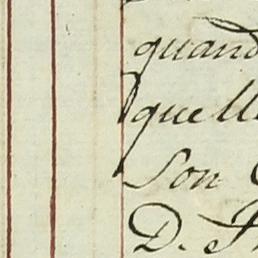 quand
quell
Son
D.